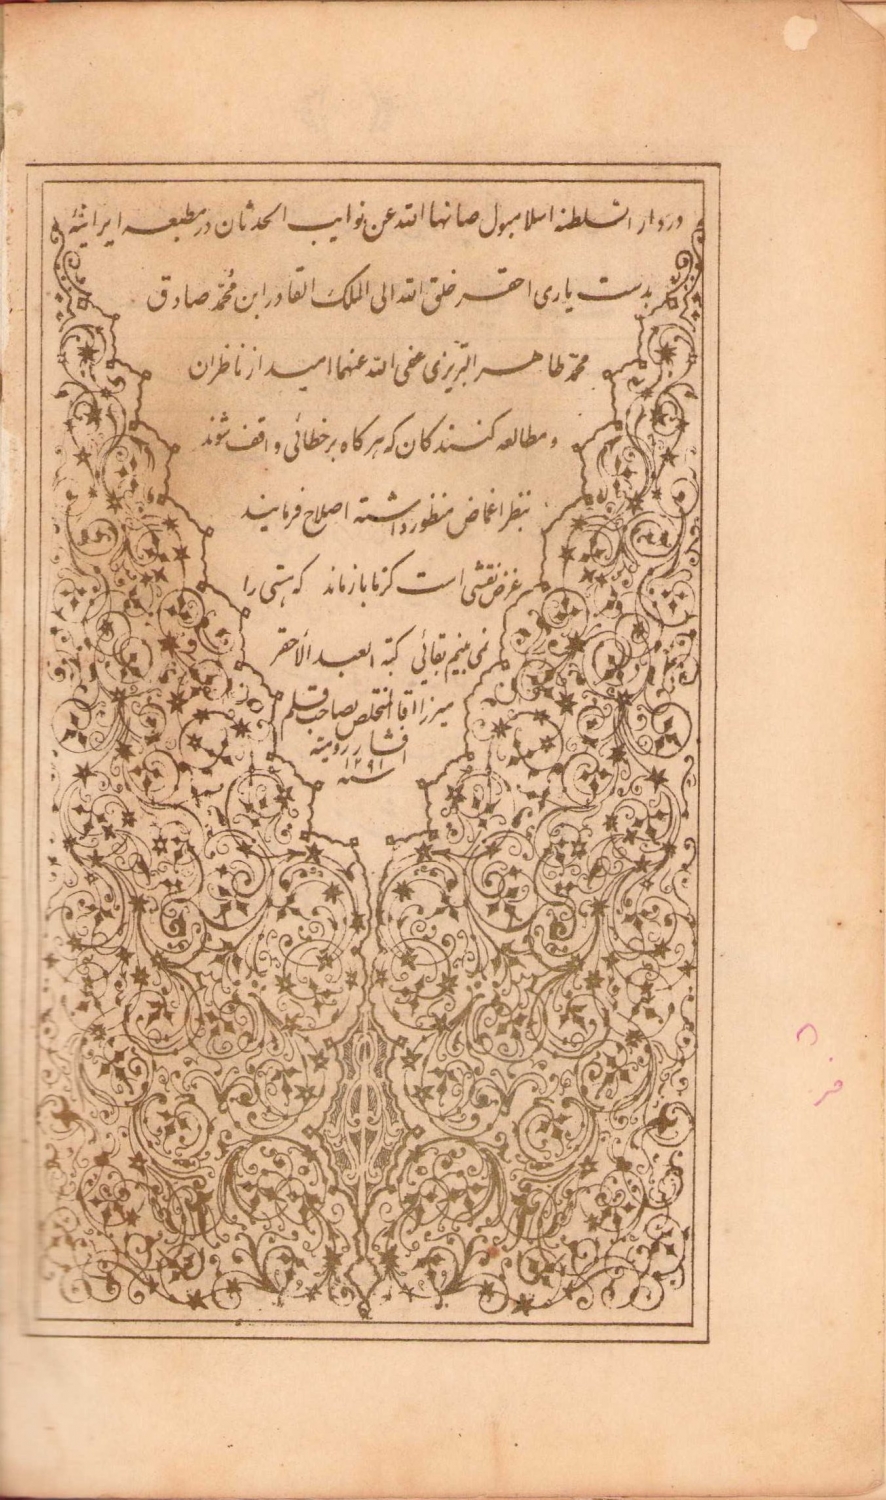 در دار السلطنه اسلامبول صانها الله عن نوایب الحدثان در مطبعه ایرانیه
بدست یاری احقر خلق الله الی الملک القادر ابن محمد صادق
محمد طاهر التبریزی عفی الله عنهما امید از ناظران
و مطالعه کنندکان که هرکاه بر خطائی واقف شوند
بنظر اغماض منظور داشته اصلاح فرمایند
غرض نقشی است کز ما باز ماند که هستی را
نمی بینم بقائی کتبه العبد الاحقر
میرزا آقا المتخلص بصاحب قلم
افشار رومیه
سنه ۱۲۹۱